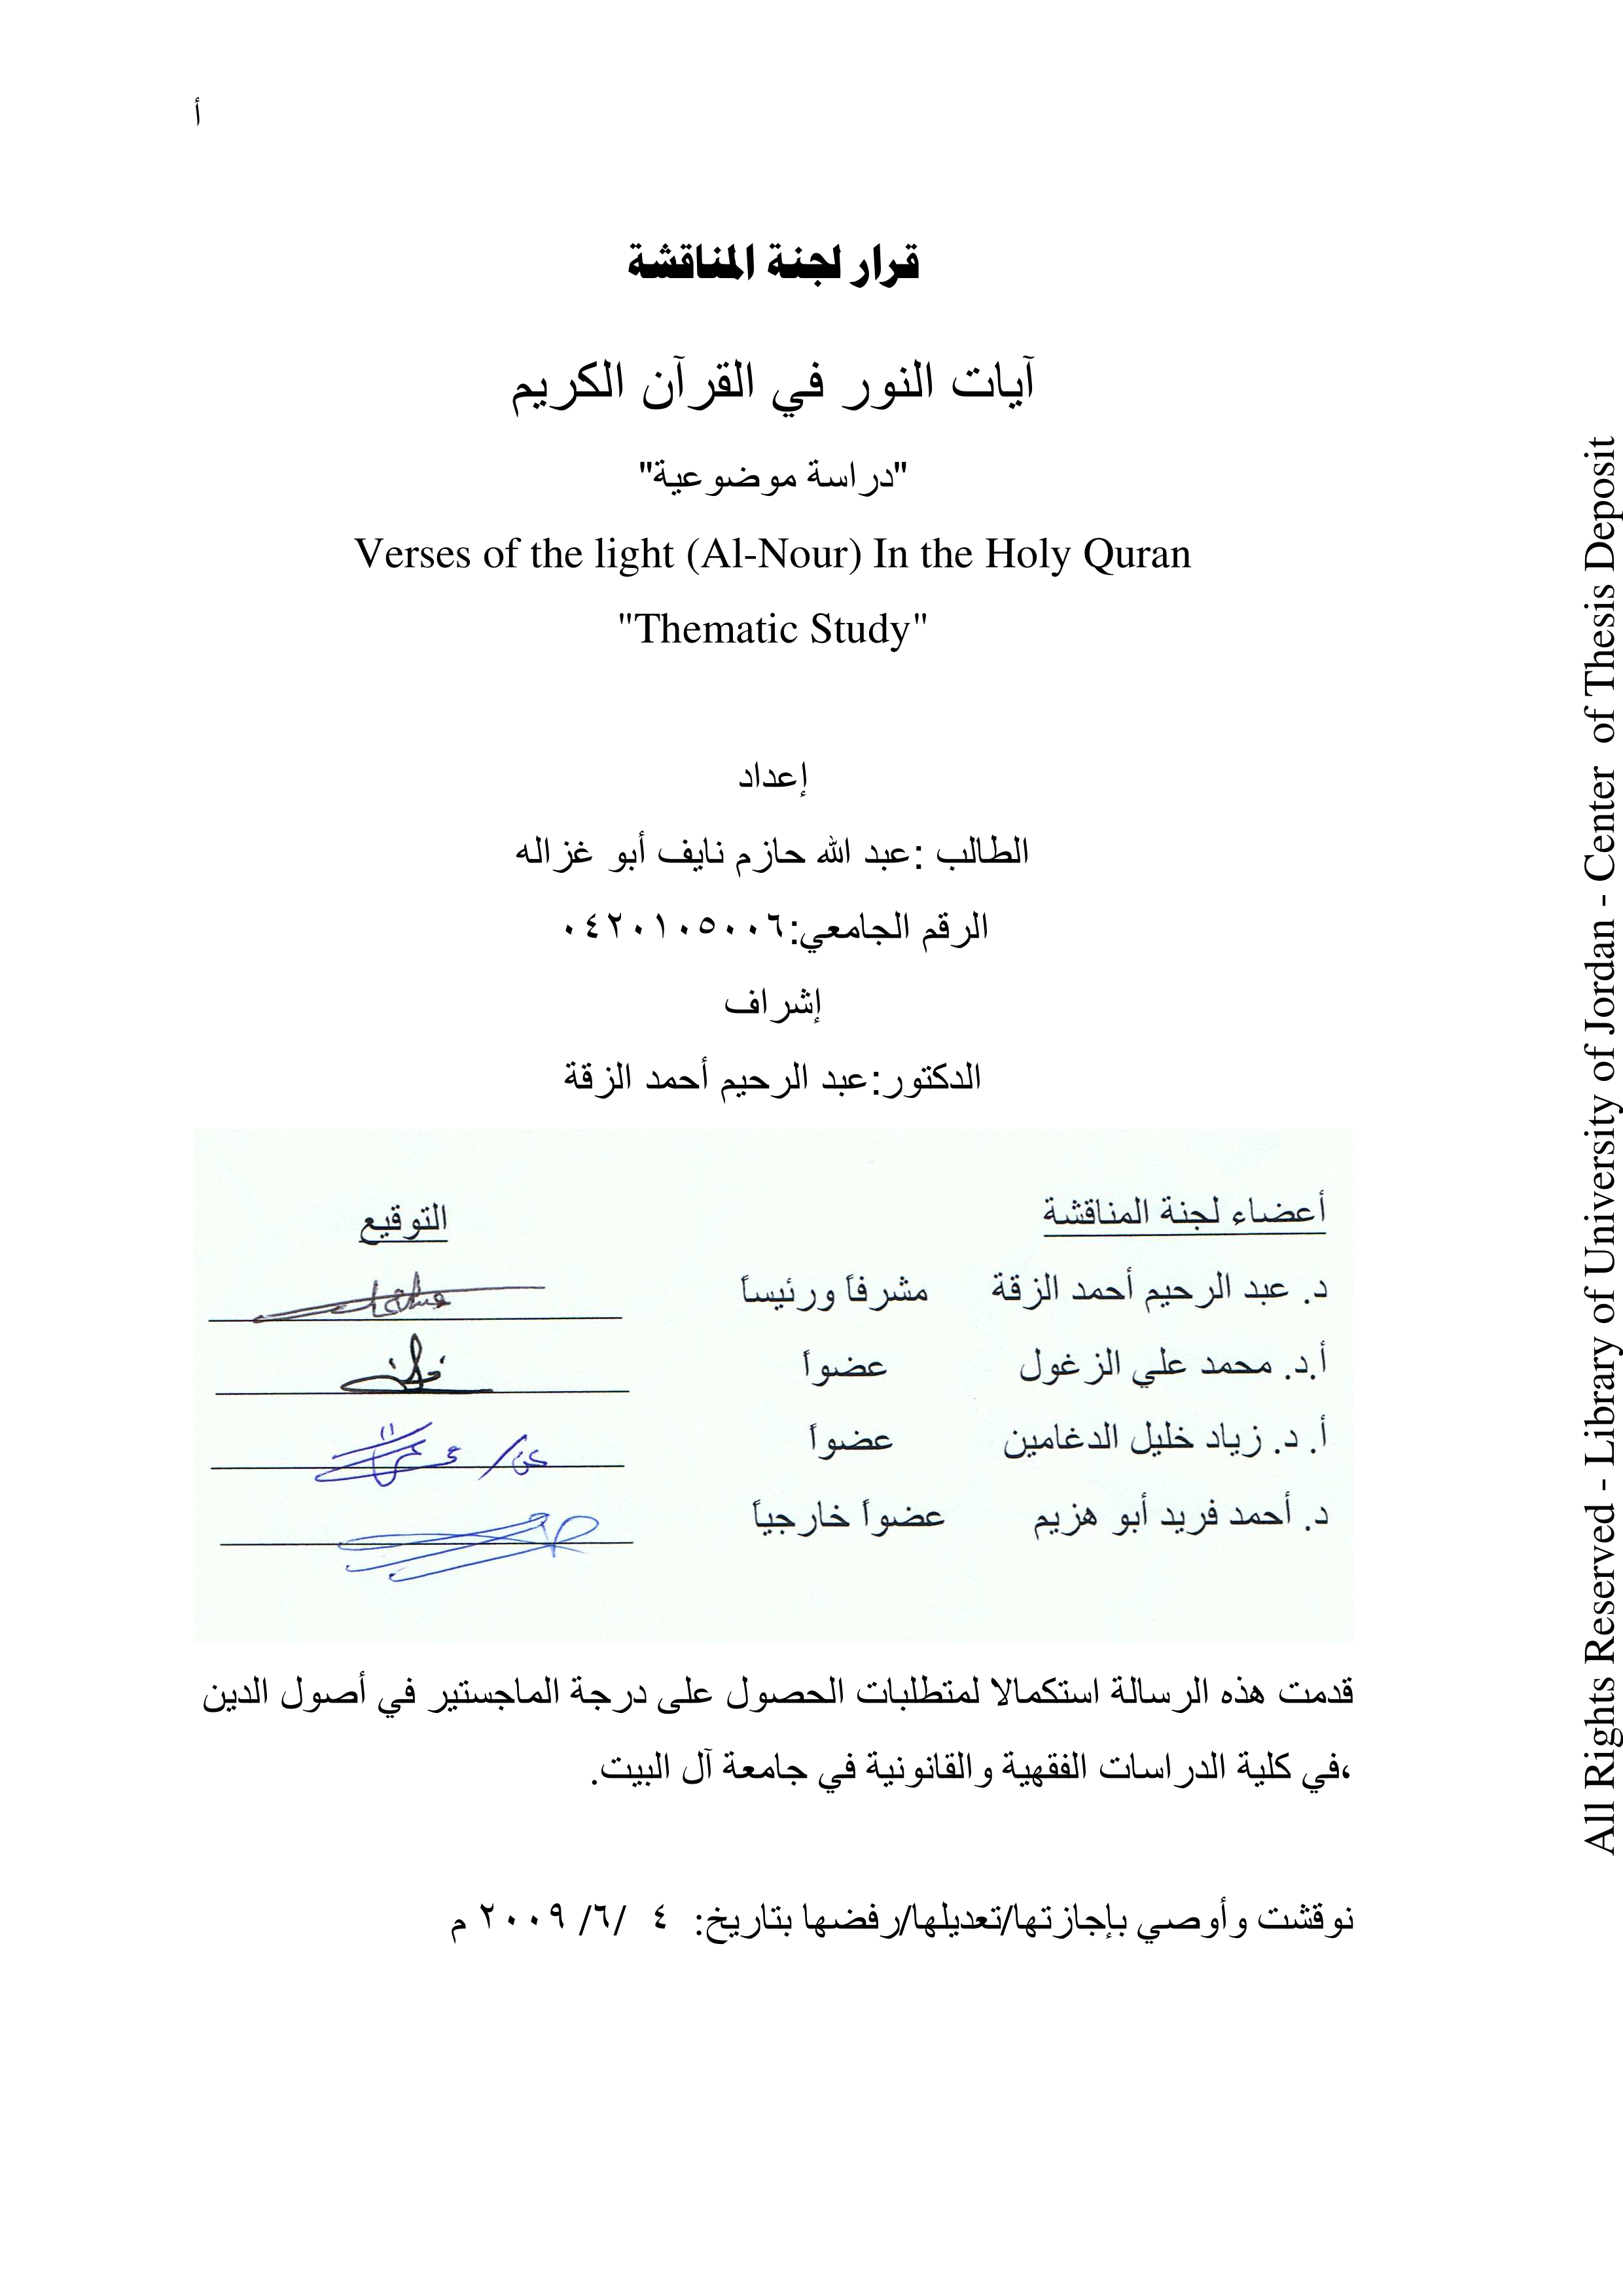 أ
قرار لجنة المناقشة
آيات النور في القرآن الكريم
"دراسة موضوعية"
Verses of the light (Al-Nour) In the Holy Quran
"Thematic Study"
إعداد
الطالب :عبد الله حازم نايف أبو غزاله
الرقم الجامعي:٠٤٢٠١٠٥٠٠٦
إشراف
الدكتور:عبد الرحيم أحمد الزقة
أعضاء لجنة المناقشة التوقيع
د. عبد الرحيم أحمد الزقة مشرفاً ورئيساً
أ.د. محمد علي الزغول عضواً
أ. د. زياد خليل الدغامين عضواً
د. أحمد فريد أبو هزيم عضواً خارجياً
قدمت هذه الرسالة استكمالا لمتطلبات الحصول على درجة الماجستير في أصول الدين
،في كلية الدراسات الفقهية والقانونية في جامعة آل البيت.
نوقشت وأوصي بإجازتها/تعديلها/رفضها بتاريخ: ٤ /٦/ ٢٠٠٩ م
All Rights Reserved - Library of University of Jordan - Center of Thesis Deposit